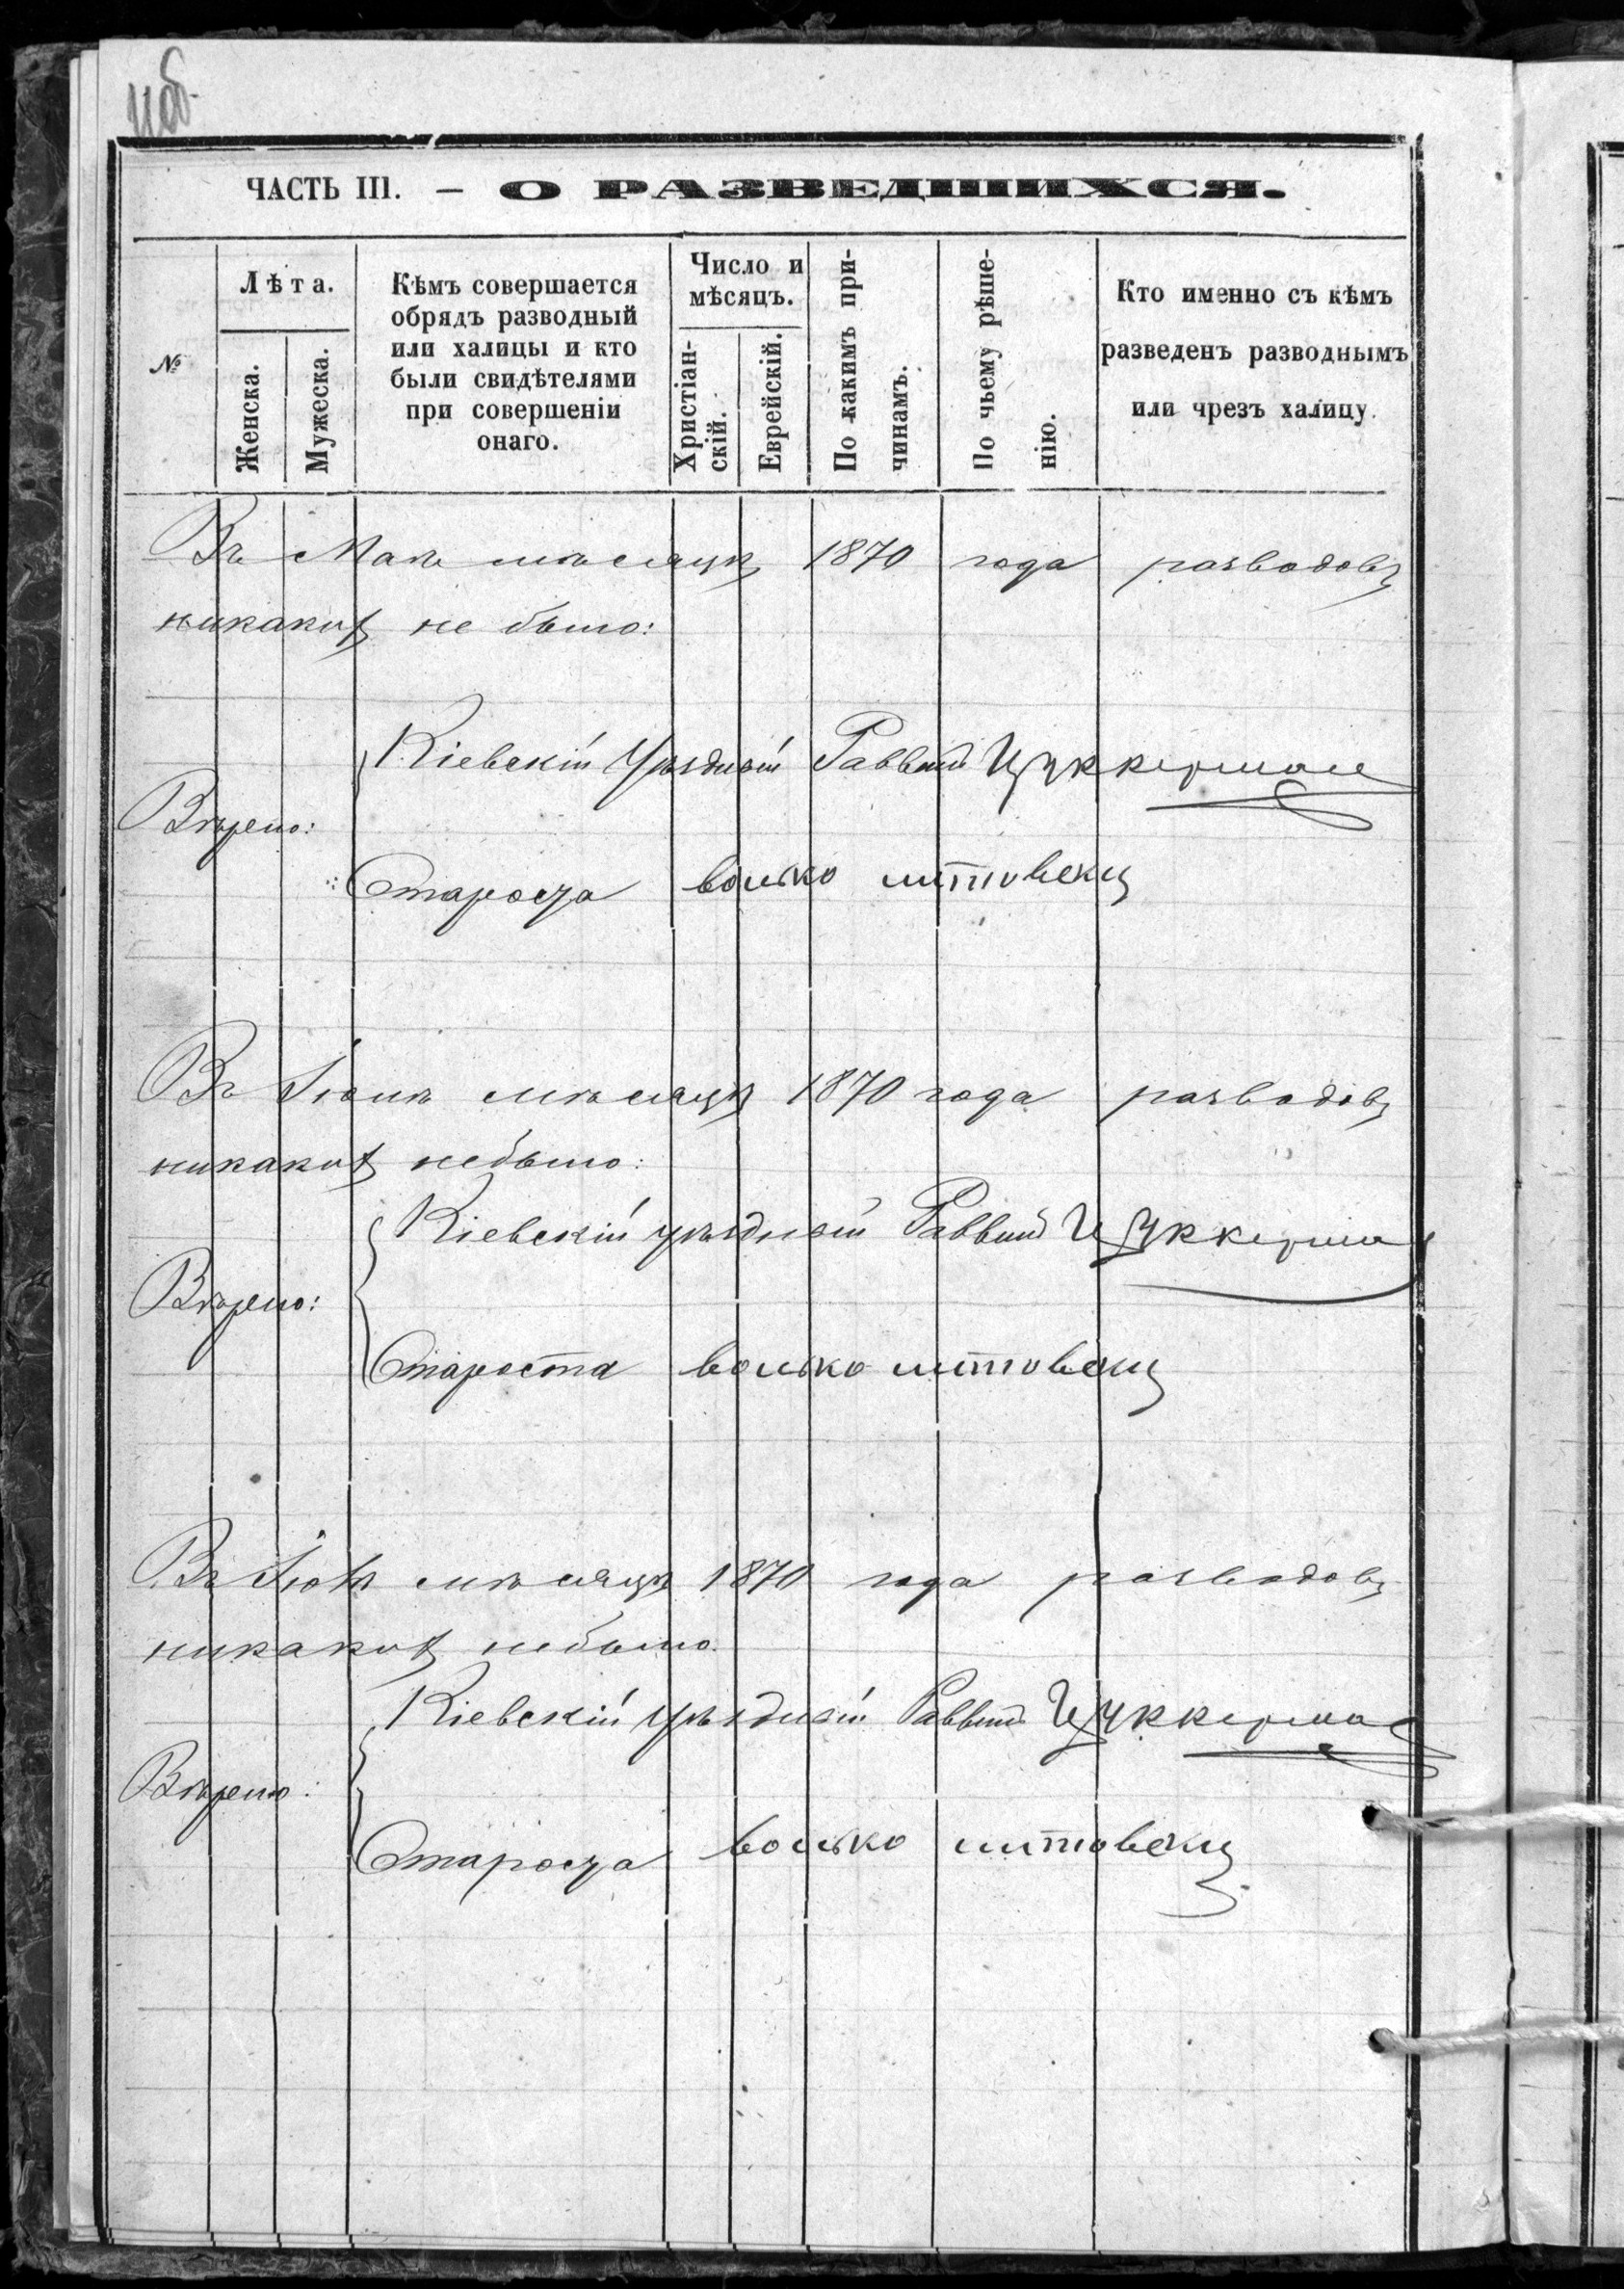 11об.
ЧАСТЬ III. — О РАЗВЕДШИХСЯ.
№
Лѣта.
Женска.
Мужеска.
Кѣмъ совершается
обрядъ разводный
или халицы и кто
были свидѣтелями
при совершеніи
онаго.
Число и
мѣсяцъ.
Христіан-
скій.
Еврейскій.
По какимъ при-
чинамъ.
По чьему рѣше-
нію.
Кто именно съ кѣмъ
разведенъ разводнымъ
или чрезъ халицу.
Въ Маѣ мѣсяцѣ 1870 года разводовъ
никакихъ не было:
Кіевскій Уѣздный Раввинъ Цуккерман
Вѣрно:
Староста волько литовецъ
Въ Іюнѣ мѣсяцѣ 1870 года разводовъ
никакихъ небыло:
Кіевскій уѣздный Раввинъ Цуккерма
Вѣрно:
Староста волько литовецъ
Въ Іюлѣ мѣсяцѣ 1870 года разводовъ
никакихъ небыло.
Кіевскій уѣздный Раввинъ Цуккерма
Вѣрно:
Староста волько литовецъ